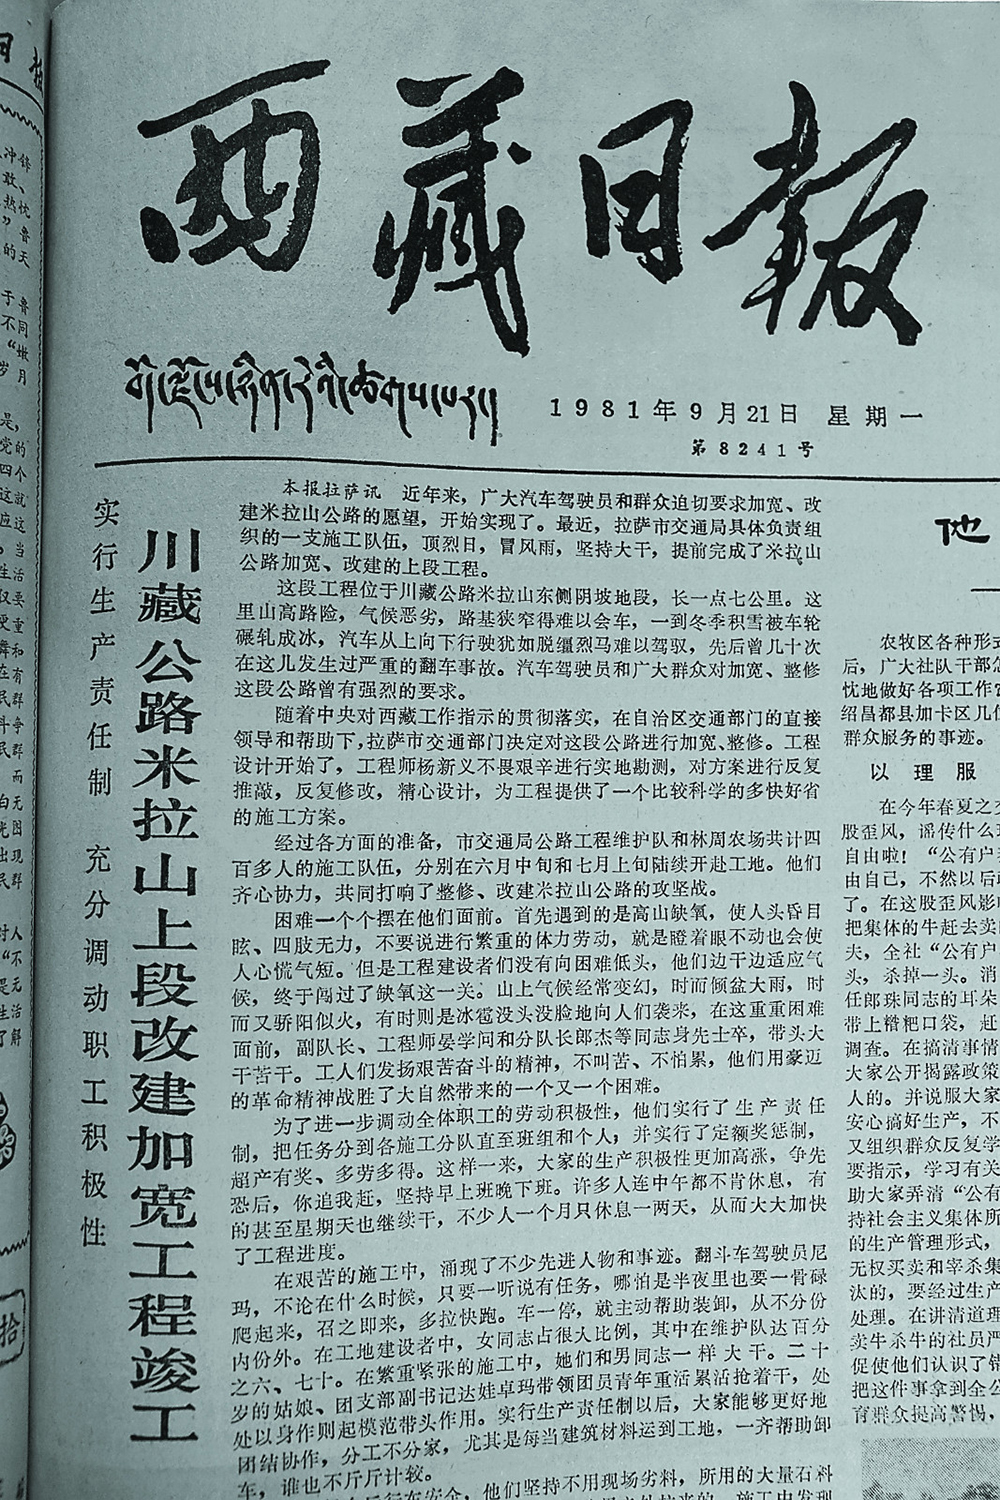 西藏日报
1981年9月21日 星期一
第8241号
实行生产责任制 充分调动职工积极性
川藏公路米拉山上段改建加宽工程竣工
本报拉萨讯 近年来，广大汽车驾驶员和群众迫切要求加宽、改
建米拉山公路的愿望，开始实现了。最近，拉萨市交通局具体负责组
织的一支施工队伍，顶烈日，冒风雨，坚持大干，提前完成了米拉山
公路加宽、改建的上段工程。
这段工程位于川藏公路米拉山东侧阴坡地段，长一点七公里。这
里山高路险，气候恶劣，路基狭窄得难以会车，一到冬季积雪被车轮
碾轧成冰，汽车从上向下行驶犹如脱缰烈马难以驾驭，先后曾几十次
在这儿发生过严重的翻车事故。汽车驾驶员和广大群众对加宽、整修
这段公路曾有强烈的要求。
随着中央对西藏工作指示的贯彻落实，在自治区交通部门的直接
领导和帮助下，拉萨市交通部门决定对这段公路进行加宽、整修。工程
设计开始了，工程师杨新义不畏艰辛进行实地勘测，对方案进行反复
推敲，反复修改，精心设计，为工程提供了一个比较科学的多快好省
的施工方案。
经过各方面的准备，市交通局公路工程维护队和林周农场共计四
百多人的施工队伍，分别在六月中旬和七月上旬陆续开赴工地。他们
齐心协力，共同打响了整修、改建米拉山公路的攻坚战。
困难一个个摆在他们面前。首先遇到的是高山缺氧，使人头昏目
眩、四肢无力，不要说进行繁重的体力劳动，就是瞪着眼不动也会使
人心慌气短。但是工程建设者们没有向困难低头，他们边干边适应气
候，终于闯过了缺氧这一关。山上气候经常变幻，时而倾盆大雨，时
而又骄阳似火，有时则是冰雹没头没脸地向人们袭来，在这重重困难
面前，副队长、工程师晏学问和分队长郎杰等同志身先士卒，带头大
干苦干。工人们发扬艰苦奋斗的精神，不叫苦、不怕累，他们用豪迈
的革命精神战胜了大自然带来的一个又一个困难。
为了进一步调动全体职工的劳动积极性，他们实行了生产责任
制，把任务分到各施工分队直至班组和个人，并实行了定额奖惩制，
超产有奖、多劳多得。这样一来，大家的生产积极性更加高涨，争先
恐后，你追我赶，坚持早上班晚下班。许多人连中午都不肯休息，有
的甚至星期天也继续干，不少人一个月只休息一两天，从而大大加快
了工程进度。
在艰苦的施工中，涌现了不少先进人物和事迹。翻斗车驾驶员尼
玛，不论在什么时候，只要一听说有任务，哪怕是半夜里也要一骨碌
爬起来，召之即来，多拉快跑。车一停，就主动帮助装卸，从不分份
内份外。在工地建设者中，女同志占很大比例，其中在维护队达百分
之六、七十。在繁重紧张的施工中，她们和男同志一样大干。二十
岁的姑娘、团支部副书记达娃卓玛带领团员青年重活累活抢着干，处
处以身作则起模范带头作用。实行生产责任制以后，大家能够更好地
团结协作，分工不分家，尤其是每当建筑材料运到工地，一齐帮助卸
车，谁也不斤斤计较。
他们坚持不用现场劣料，所用的大量石料
他
农牧区各种形式
后，广大社队干部怎
忧地做好各项工作
绍昌都县加卡区几
群众服务的事迹。
以理服
在今年春夏之
股歪风，谣传什么
自由啦！“公有户
由自己，不然以后
了。在这股歪风影
把集体的牛赶去卖
夫，全社“公有户
头，杀掉一头。消
任郎珠同志的耳朵
带上糌粑口袋，赶
调查。在搞清事情
大家公开揭露政策
人的。并说服大家
安心搞好生产，不
又组织群众反复学
要指示，学习有关
助大家弄清“公有
持社会主义集体所
的生产管理形式，
无权买卖和宰杀集
汰的，要经过生产
处理。在讲清道理
卖牛杀牛的社员严
促使他们认识了错
把这件事拿到全公
育群众提高警惕，